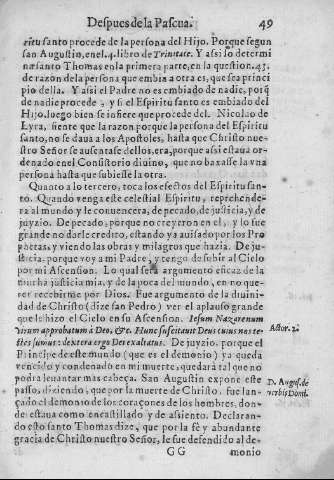 Despues de la Pascua. 49
ritu santo procede de la persona del Hijo. Porque segun
san Augustin, en el 4. libro de Trinitate. Y assi lo determi
na santo Thomas en la primera parte, en la question. 43.
de razon de la persona que embia a otra es, que sea princi
pio della. Y assi el Padre no es embiado de nadie, porq̃
de nadie procede, y si el Espiritu santo es embiado del
Hijo, luego bien se infiere que procede del. Nicolao de
Lyra, siente que la razon porque la persona del Espiritu
santo, no se daua a los Apostoles, hasta que Christo nue-
stro Señor se ausentasse dellos, era, porque assi estaua or-
denado en el Consistorio diuino, que no baxasse la vna
persona hasta que subiesse la otra.
Quanto a lo tercero, toca los efectos del Espiritu san-
to. Quando venga este celestial Espiritu, reprehende-
ra al mundo y le conuencera, de pecado, de justicia, y de
juyzio. De pecado, porque no creyeron en el, y lo fue
grande no darle credito, estando ya auisado por los Pro
phetas, y viendo las obras y milagros que hazia. De ju-
sticia, porque voy a mi Padre, y tengo de subir al Cielo
por mi Ascension. Lo qual será argumento eficaz de la
mucha justicia mia, y de la poca del mundo, en no que-
rer recebirme por Dios. Fue argumento de la diuini-
dad de Christo (dize san Pedro) ver el aplauso grande
que le hizo el Cielo en su Ascension. Iesum Nazarenum
virum approbatum à Deo, &c. Hunc suscitauit Deus cuius nos te-
stes sumus: dextera ergo Dei exaltatus. De juyzio, porque el
Actor. 2.
Principe de este mundo (que es el demonio) ya queda
vencido y condenado en mi muerte, quedará tal que no
podra leuantar mas cabeça. San Augustin expone este
passo, diziendo, que por la muerte de Christo, fue lan-
D. Augus. de
çado el demonio de los coraçones de los hombres, don-
verbis Domi.
de estaua como encastillado y de assiento. Declaran-
do esto santo Thomas dize, que por la fè y abundante
gracia de Christo nuestro Señor, le fue defendido al de-
G G monio